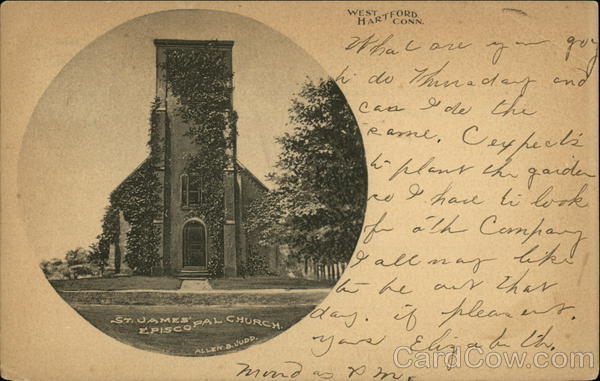 WEST HARTFORD.
CONN.
What are you goy
to do Thursday and
can I do the
same. C expects
to plant the garden
so I have to look
for oth Company
I all may like
to be out that
day. if pleasant.
yours Elizabeth.
Monday P.M.
ST. JAMES'
EPISCOPAL CHURCH.
ALLEN B. JUDD.
CardCow.com